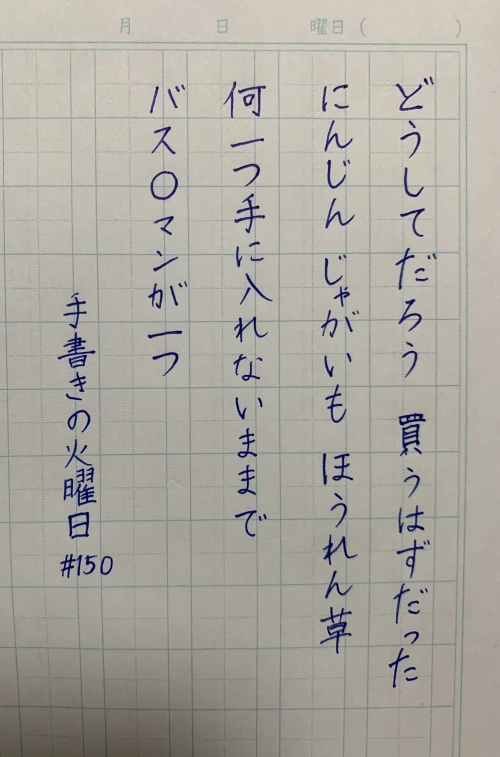 月 日 曜日( )
どうしてだろう 買うはずだった
にんじん じゃがいも ほうれん草
何一つ手に入れないままで
バス〇マンが一つ
手書きの火曜日
#150